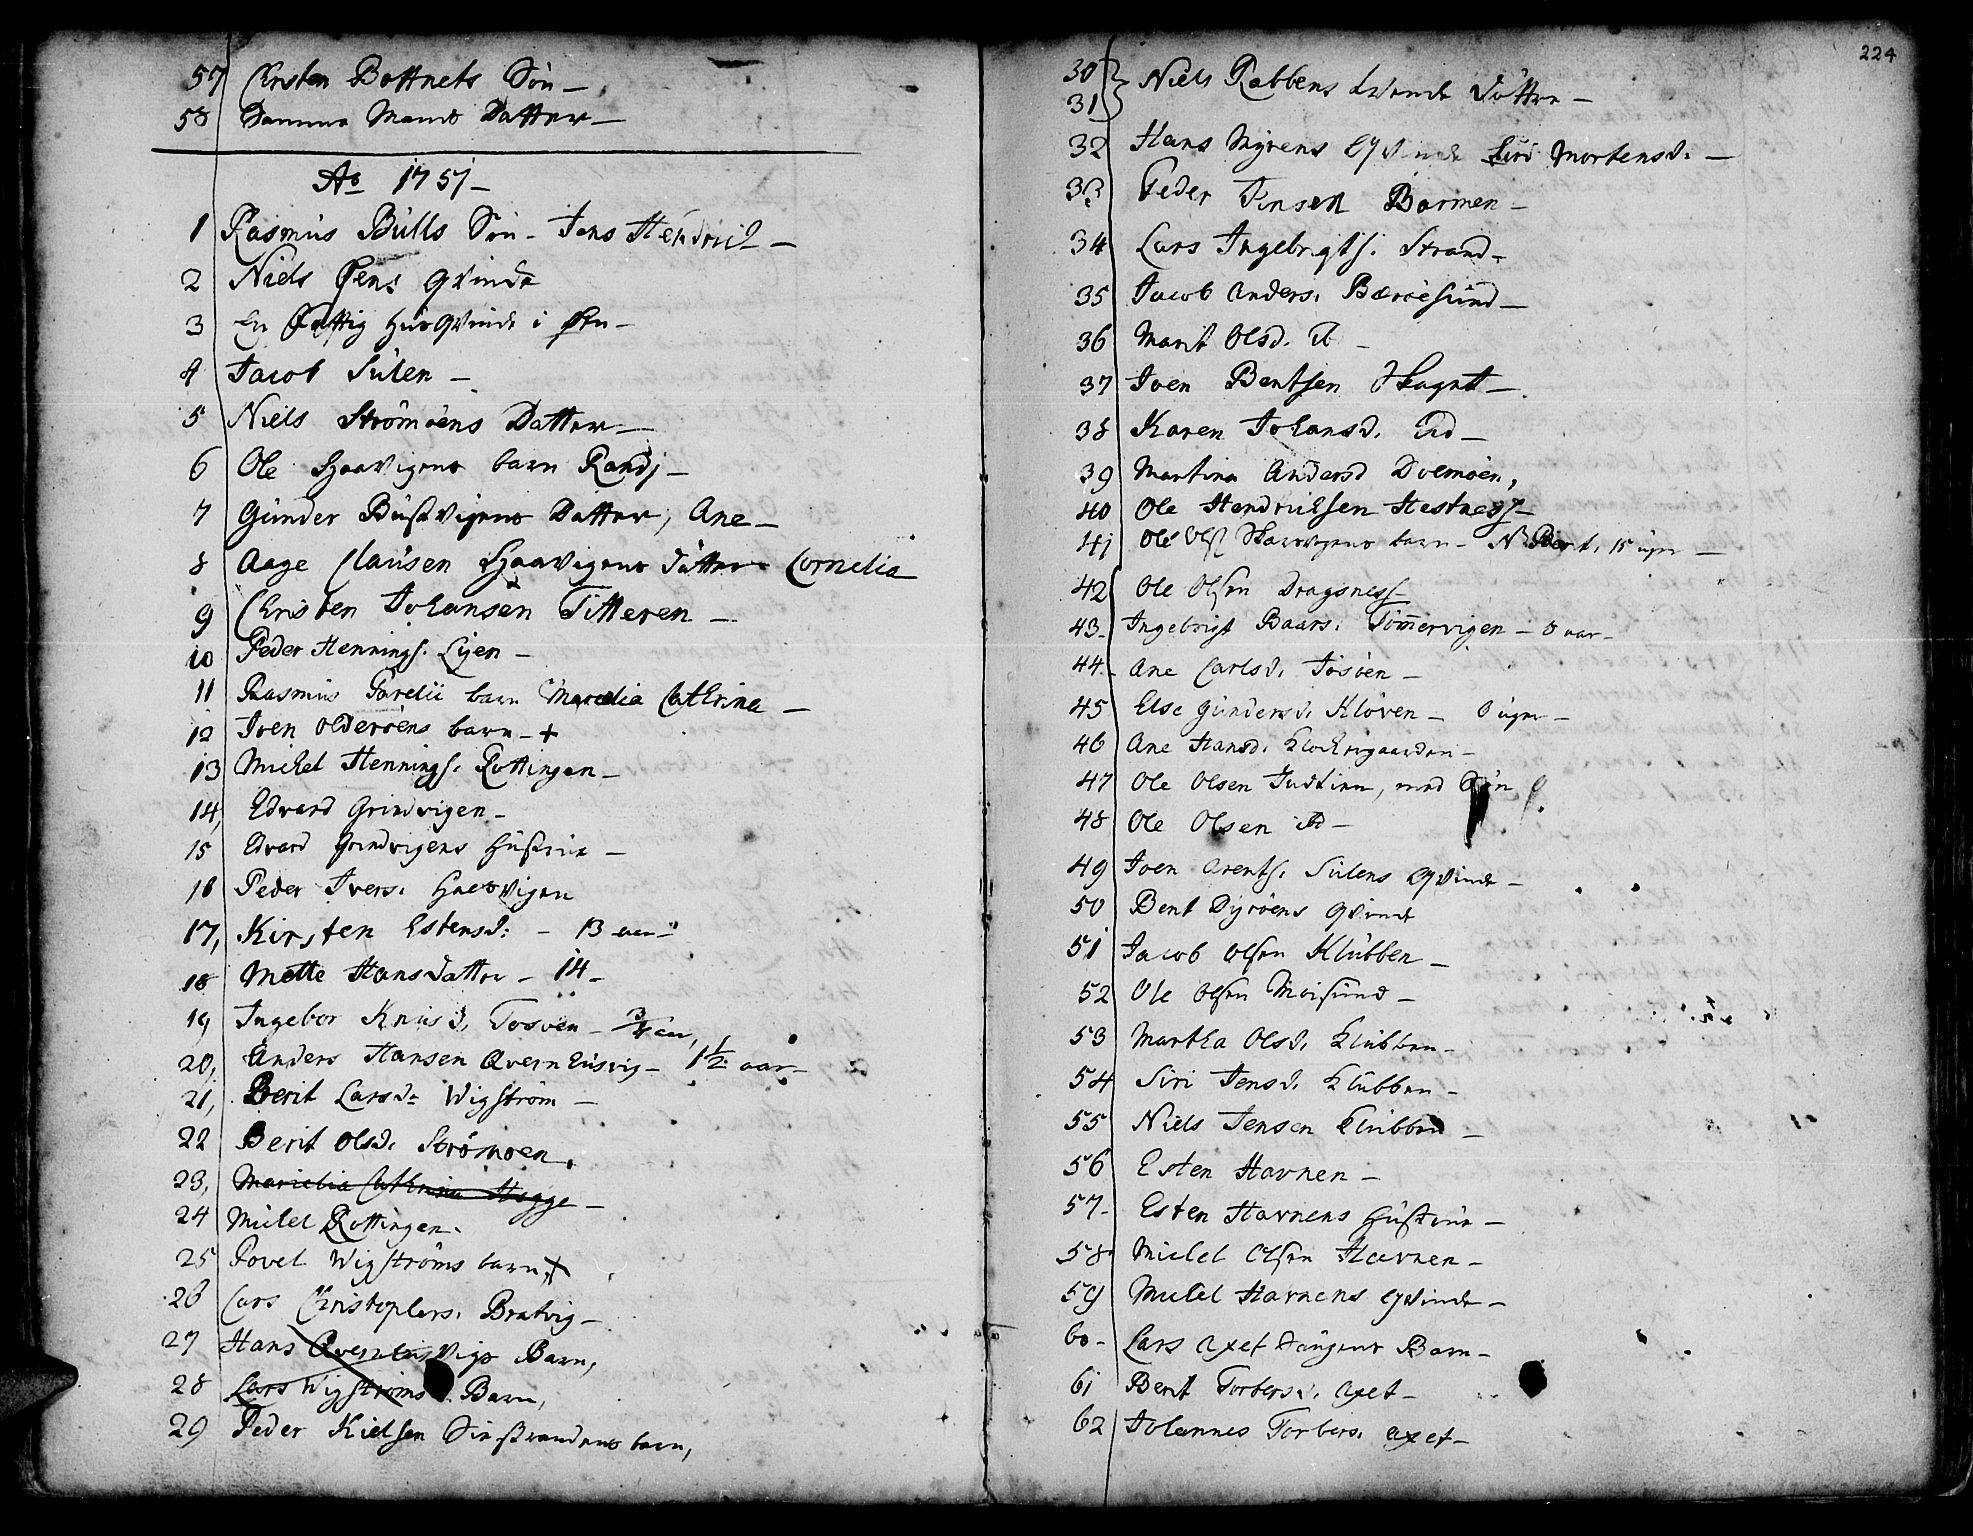 57 Christen Bottnets Søn –
58 Samme Mands Datter –
Ao 1751 –
1 Rasmus Bulls Søn – Jens Hendrich –
2 Niels Øens Qvinde
3 En Fattig HuusQvinde i Øen –
4 Jacob Sulen –
5 Niels Strömöens Datter –
6 Ole Haavigens barn Randj –
7 Gunder Bustvigens Datter, Ane –
8 Aage Clausen Haavigens Datter Cornelia
9 Christen Johansen Titteren –
10 Peder Hennings. Lyen –
11 Rasmus Parelii barn Marelia Cathrina –
12 Iven Olderøens barn – +
13 Michel Hennings. Rottingen –
14, Edvard Grindvigen –
15 Edvard Grindvigens Hustrue –
16 Peder Ivers. Haavigen
17, Kirsten Estensd: – 13 aar –
18 Mette Hansdatter – 14 –
19 Ingebor Knusd. Tosøen – 3/4 aar,
20, Anders Hansen Qvernhusvig – 1 1/2 aar –
21, Berit Larsd: Wigström –
22 Berit Olsd. Strömoen,
23, Marielia Cathrina Hegge –
24 Michel Rottingen.
25 Povel Wigströms barn, +
26 Lars Christophers. Bratvig –
27 Hans Qvernhusvigs Barn,
28 Lars Wigströms Barn,
29 Peder Kielsen Sinstrandens barn,
224
30
31 } Niels Rabbens tvende Døttre –
32 Hans Myrens Qvinde Siri Mortensd. –
33 Peder Jensen Barmen –
34 Lars Ingebrigts. Strand –
35 Jacob Anders. Bæröesund –
36 Marit Olsd. ib. –
37 Iven Bentsen Skagnet –
38 Karen Johansd. ibid –
39 Martina Andersd Dolmöen,
40 Ole Hendrichsen Hestness –
41 Ole Ols. Haavigens barn – N. Bert, 15 uger –
42 Ole Olsen Dragsness –
43 – Ingebrigt Baars. Tömmervigen – 8 aar –
44 – Ane Carlsd. Tosöen –
45 Else Gundersd. Klöven – 8 uger –
46 Ane Hansd. Klochergaarden –
47 Ole Olsen Indtian, med Søn
48 Ole Olsen ib –
49 Iven Arents. Sulens Qvinde –
50 Bent Dyröens Qvinde
51 Jacob Olsen Klubben –
52 Ole Olsen Moisund –
53 Martha Olsd. Klubben –
54 Siri Jensd. Klubben –
55 Niels Jensen Klubben –
56 Esten Havnen –
57 – Esten Havnens Hustrue –
58 Michel Olsen Havnen –
59 Michel Havnens Qvinde –
60 – Lars Axet Vangens Barn –
61 Berit Torbersd. Axet –
62 Johannes Torbers. Axet –